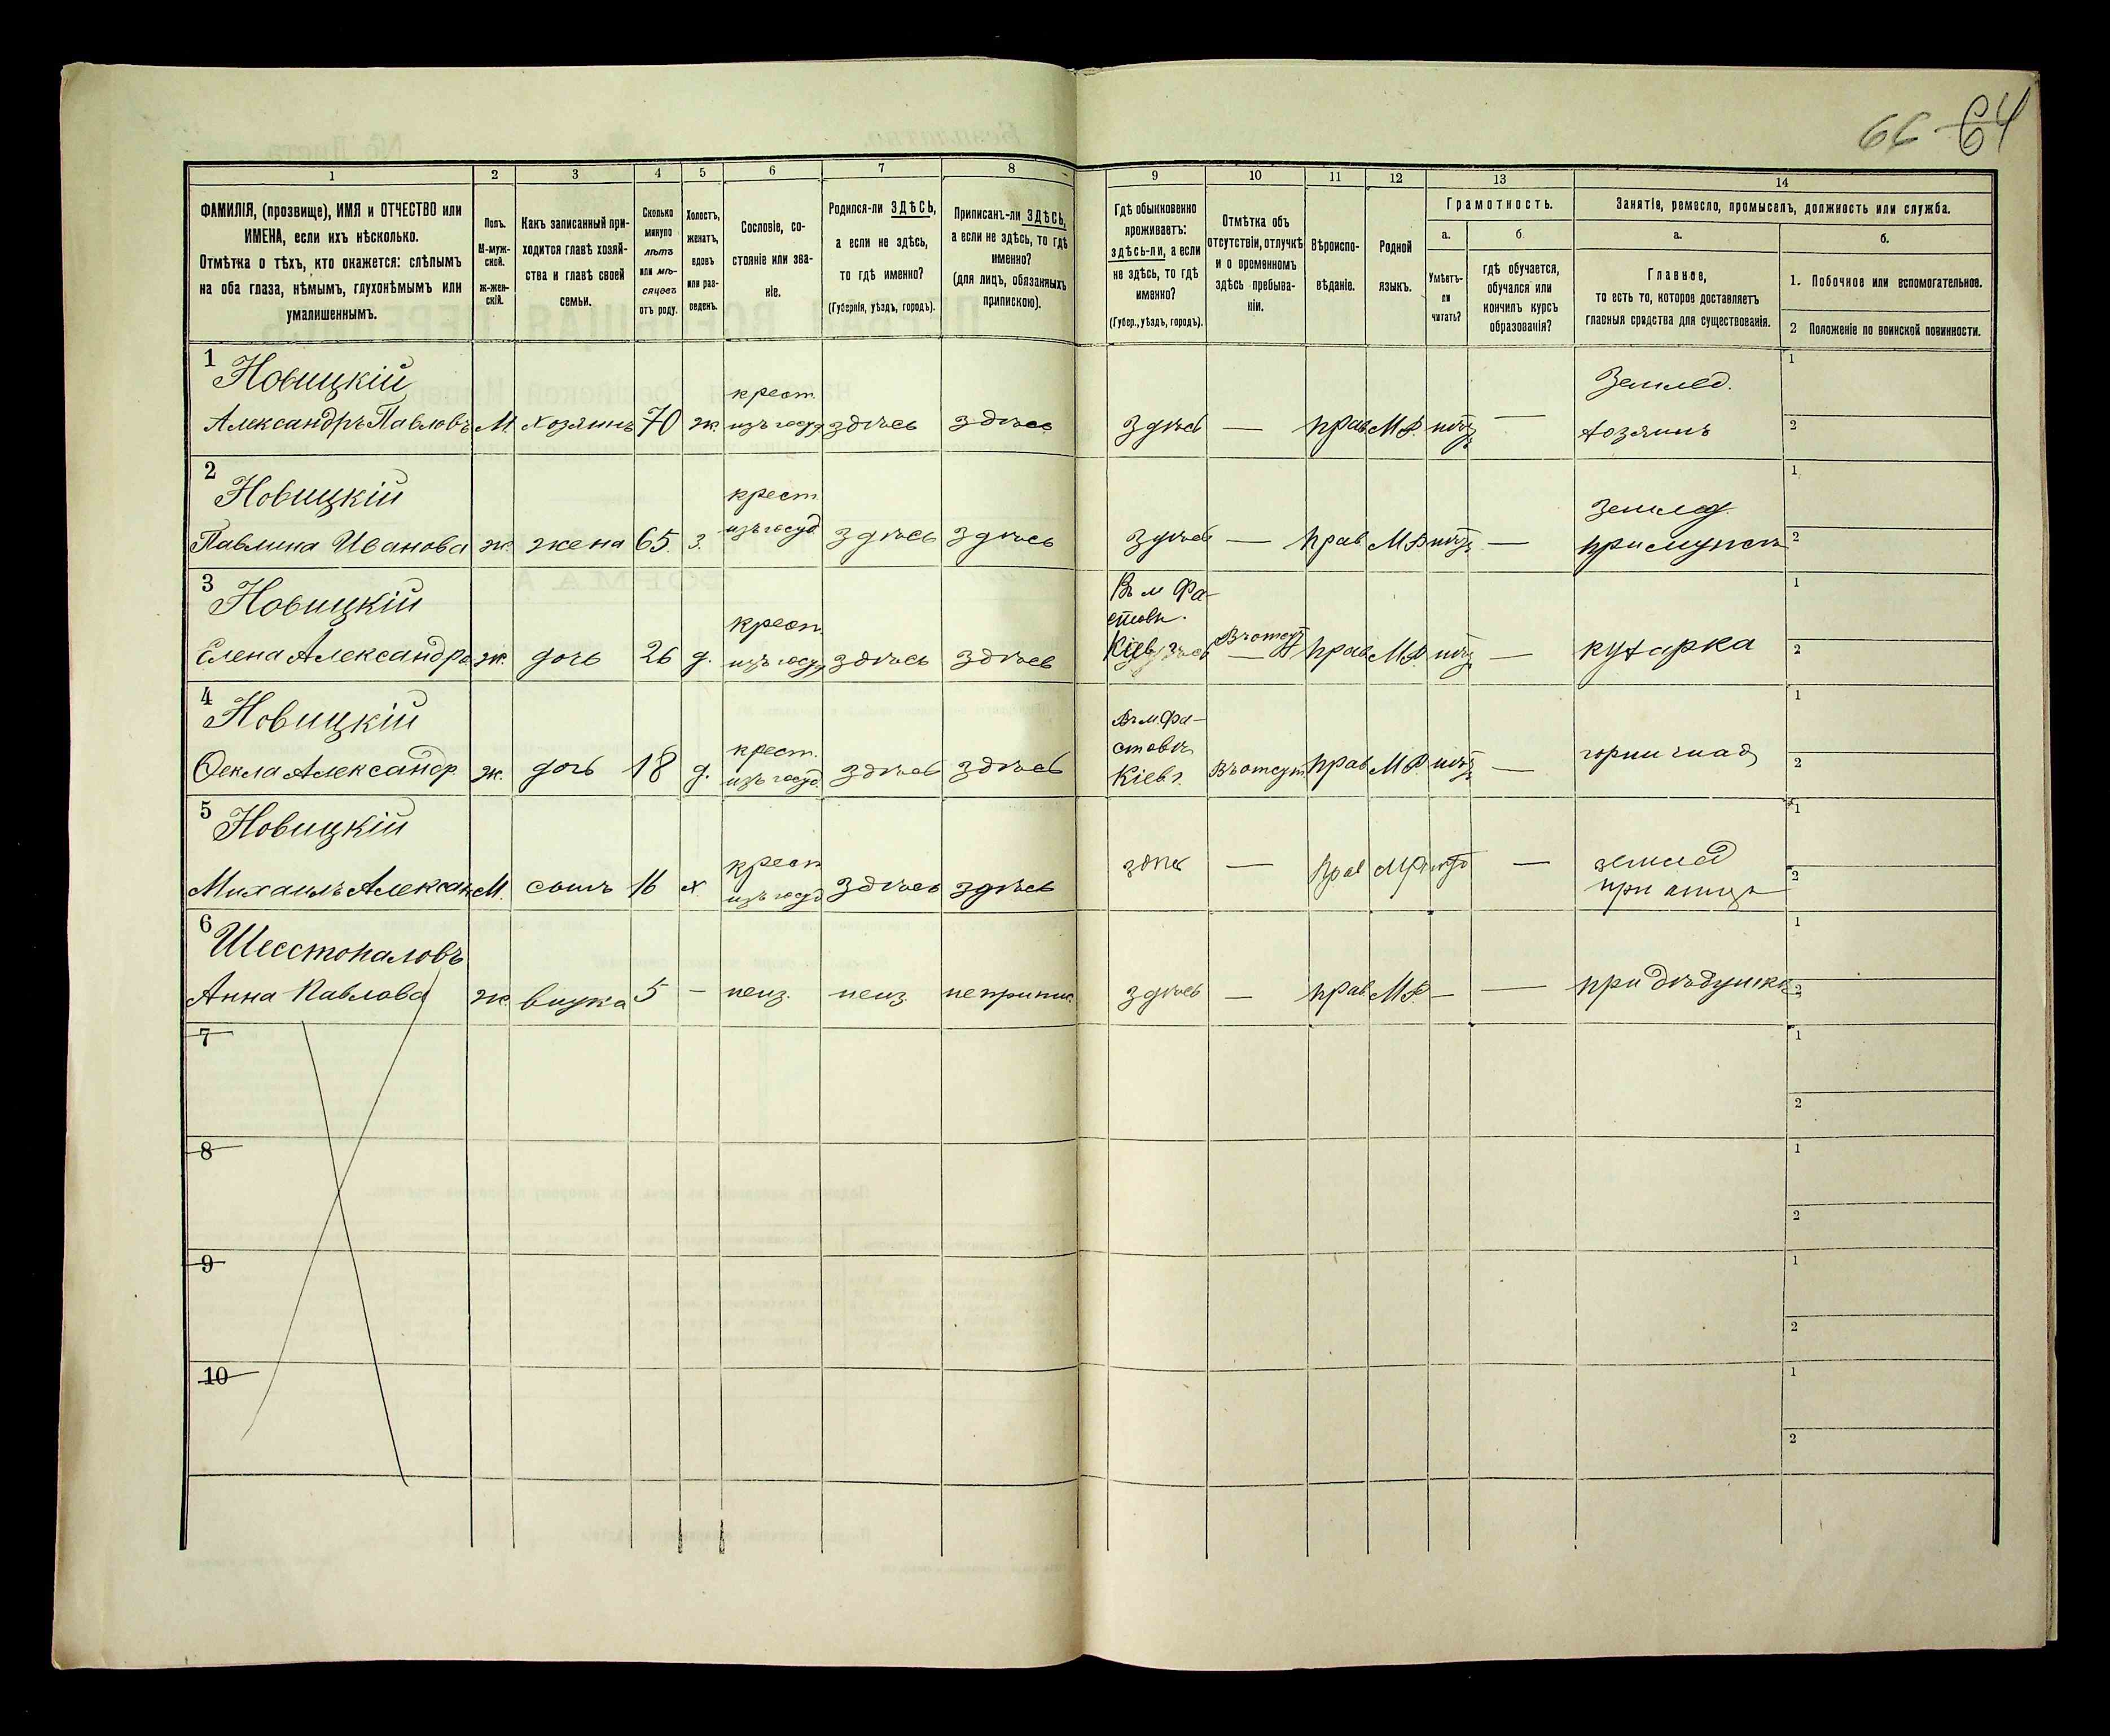 66 64
1 2 3 4 5 6 7 8 9 10 11 12 13 14
ФАМИЛІЯ, (прозвище), ИМЯ и ОТЧЕСТВО или
ИМЕНА, если ихъ нѣсколько.
Отмѣтка о тѣхъ, кто окажется: слѣпымъ
на оба глаза, нѣмымъ, глухонѣмымъ или
умалишеннымъ.
Полъ.
М-муж-
ской.
Ж-жен-
скій.
Какъ записанный при-
ходится главѣ хозяй-
ства и главѣ своей
семьи.
Сколько
минуло
лѣтъ
или мѣ-
сяцевъ
отъ роду.
Холостъ,
женатъ,
вдовъ
или раз-
веденъ.
Сословіе, со-
стояніе или зва-
ніе.
Родился-ли ЗДѢСЬ,
а если не здѣсь,
то гдѣ именно?
(Губернія, уѣздъ, городъ).
Приписанъ-ли ЗДѢСЬ,
а если не здѣсь, то гдѣ
именно?
(для лицъ, обязанныхъ
припискою).
Гдѣ обыкновенно
проживаетъ:
здѣсь-ли, а если
не здѣсь, то гдѣ
именно?
(Губер., уѣздъ, городъ).
Отмѣтка объ
отсутствіи, отлучкѣ
и о временномъ
здѣсь пребыва-
ніи.
Вѣроиспо-
вѣданіе.
Родной
языкъ.
Грамотность.
а.
Умѣетъ-
ли
читать?
б.
гдѣ обучается,
обучался или
кончилъ курсъ
образованія?
Занятіе, ремесло, промыселъ, должность или служба.
а.
Главное,
то есть то, которое доставляетъ
главныя средства для существованія.
б.
1. Побочное или вспомогательное.
2 Положеніе по воинской повинности.
1 Новицкій крест. Землед. 1
Александръ Павловъ М. хозяинъ 70 ж. изъ госуд здѣсь здѣсь здѣсь — прав М.Р. — хозяинъ 2
2 Новицкій крест. землед. 1
Павлина Иванова ж. жена 65. з. изъ госуд. здѣсь здѣсь здѣсь — прав М.Р. — при мужѣ 2
3 Новицкій крест. Въ м Фа-
стовѣ. 1
Елена Александр. ж. дочь 26 д. изъ госуд здѣсь здѣсь Кіев. Въ отсут прав М.Р. — кухарка 2
4 Новицкій крест. Въ м. Фа-
стовѣ 1
Ѳекла Александр. ж. дочь 18 д. изъ госуд. здѣсь здѣсь Кіев г. Въ отсут. прав М.Р. — горничная 2
5 Новицкій крест землед 1
Михаилъ Алексан М. сынъ 16 х изъ госуд здѣсь здѣсь здѣс — Прав М.Р. — при отцѣ 2
6 Шестопаловъ 1
Анна Павлова ж. внука 5 — неиз. неиз. неприпис. здѣсь — прав М.Р. — — при дѣдушкѣ 2
7 1
2
8 1
2
9 1
2
10 1
2